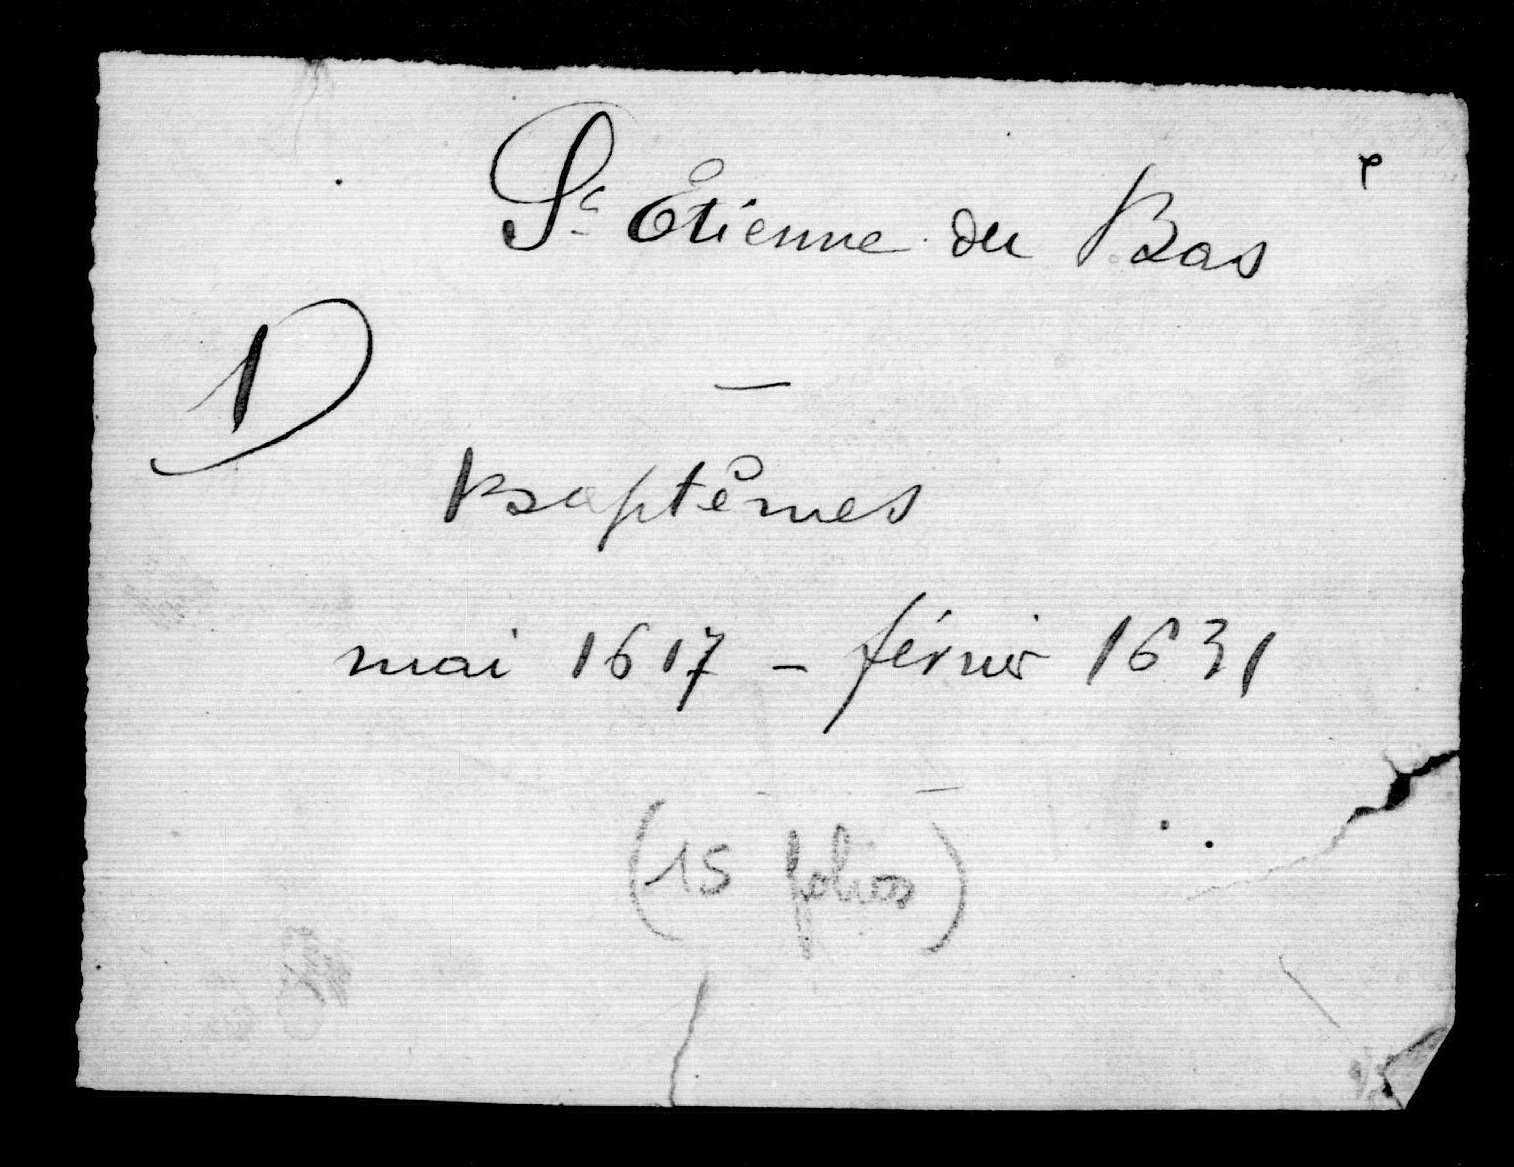 St Etienne du Bas
1
Baptêmes
mai 1617 - février 1631
(15 folios)